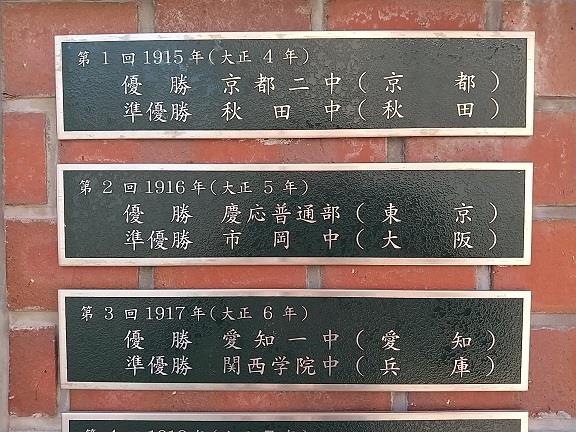 第1回1915年(大正4年)
優勝 京都二中(京都)
準優勝 秋田中(秋田)
第2回1916年(大正5年)
優勝 慶応普通部(東京)
準優勝 市岡中(大阪)
第3回1917年(大正6年)
優勝 愛知一中(愛知)
準優勝 関西学院中(兵庫)